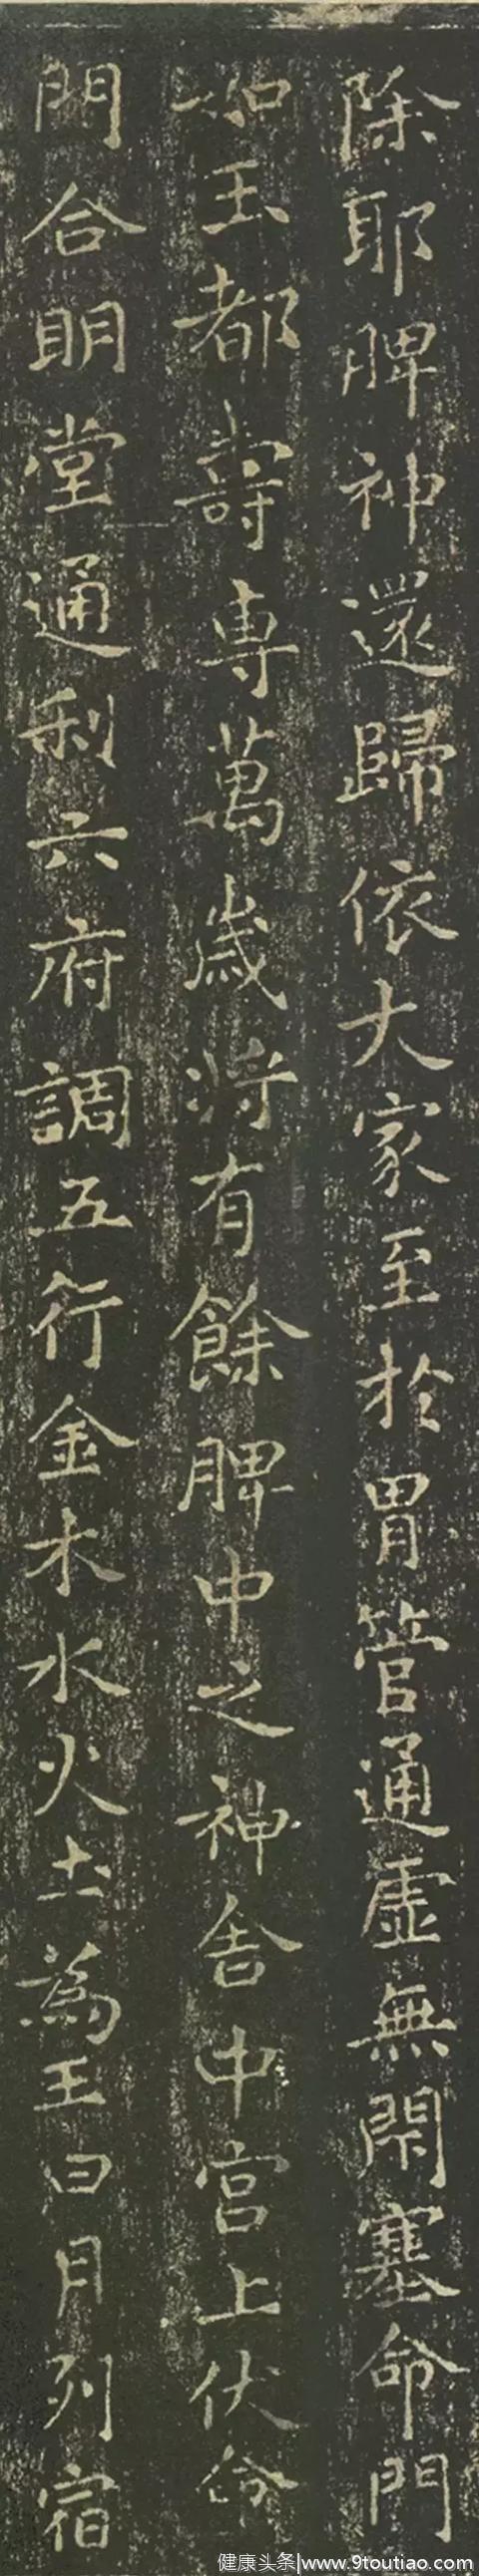 除耶脾神還歸依大家至於胃管通虛無閇塞命門
如玉都壽專萬歲將有餘脾中之神舍中宮上伏命
門合明堂通利六府調五行金木水火土為王日月列宿
健康头条|www.9toutiao.com